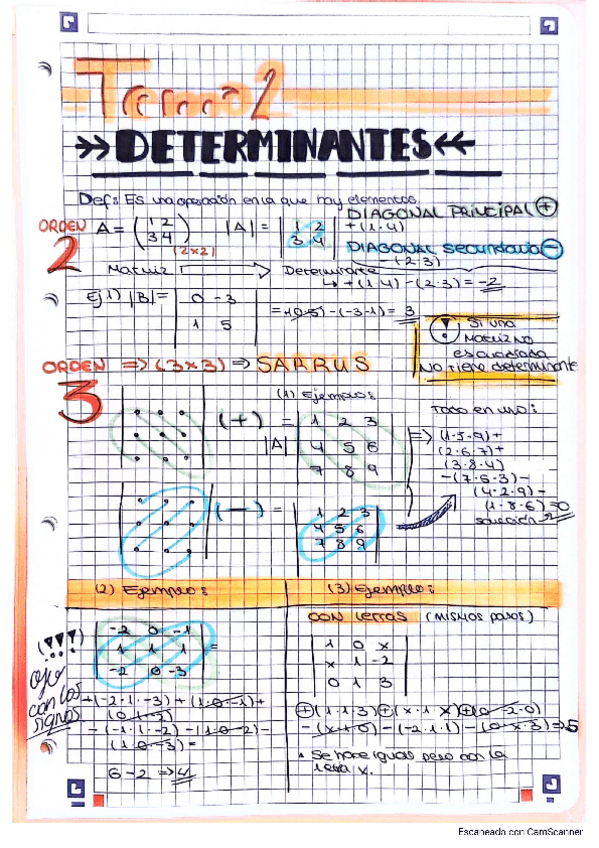 Tema 2
DETERMINANTES
Def: Es una operación en la que hay elementos.
ORDEN 2
A = (1 2
3 4) (2x2)
|A| = |1 2
3 4|
DIAGONAL PRINCIPAL +
+(1·4)
DIAGONAL secundaria −
(2·3)
Matriz → Determinante
↳ +(1·4) − (2·3) = −2
Ej 1) |B| = |0 −3
1 5| = +(0·5) − (−3·1) = 3
! Si una
Matriz no
es cuadrada
No tiene determinante
ORDEN 3 ⇒ (3x3) ⇒ SARRUS
(1) Ejemplo:
Todo en uno:
(+) =
|A|
1 2 3
4 5 6
7 8 9
⇒ (1·5·9)+
(2·6·7)+
(3·8·4)
−(7·5·3)−
(4·2·9)−
(1·8·6) = 0
solución
(−) =
1 2 3
4 5 6
7 8 9
(2) Ejemplo:
(!!!)
Ojo
con los
signos
−2 0 −1
1 1 1
−2 0 −3
=
+(−2·1·−3) + (1·0·−1)+
(0·1·−2)
−(−1·1·−2) − (1·0·−2) −
(1·0·−3) =
6 − 2 ⇒ 4
(3) Ejemplo:
CON letras (mismos pasos)
1 0 x
x 1 −2
0 1 3
+(1·1·3)+(x·1·x)+(0·−2·0)
−(x·1·0) − (−2·1·1) − (0·x·3) ⇒ 5
• Se hace igual pero con la
letra x.
Escaneado con CamScanner